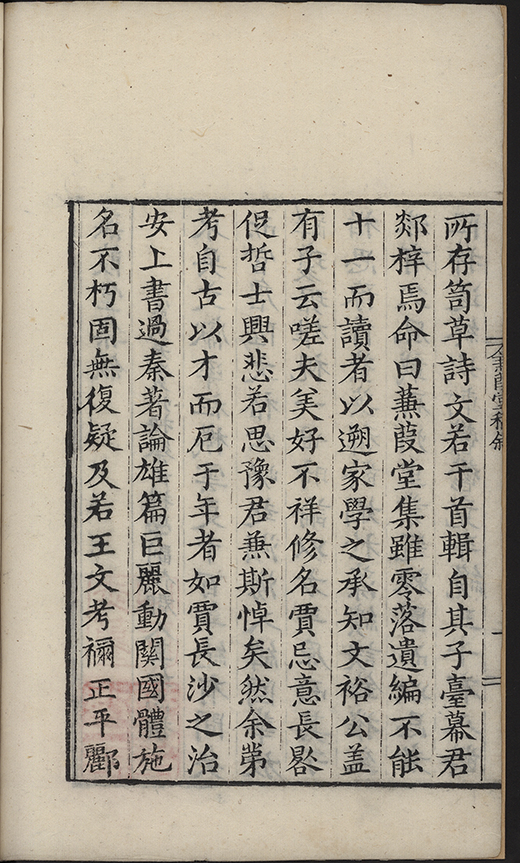 所存笥草詩文若干首輯自其子臺幕君
郯梓焉命曰蒹葭堂集雖零落遺編不能
十一而讀者以遡家學之承知文裕公盖
有子云嗟夫美好不祥修名賈忌意長晷
促哲士興悲若思豫君兼斯悼矣然余苐
考自古以才而厄于年者如賈長沙之治
安上書過秦著論雄篇巨麗動關國體施
名不朽固無復疑及若王文考禰正平酈